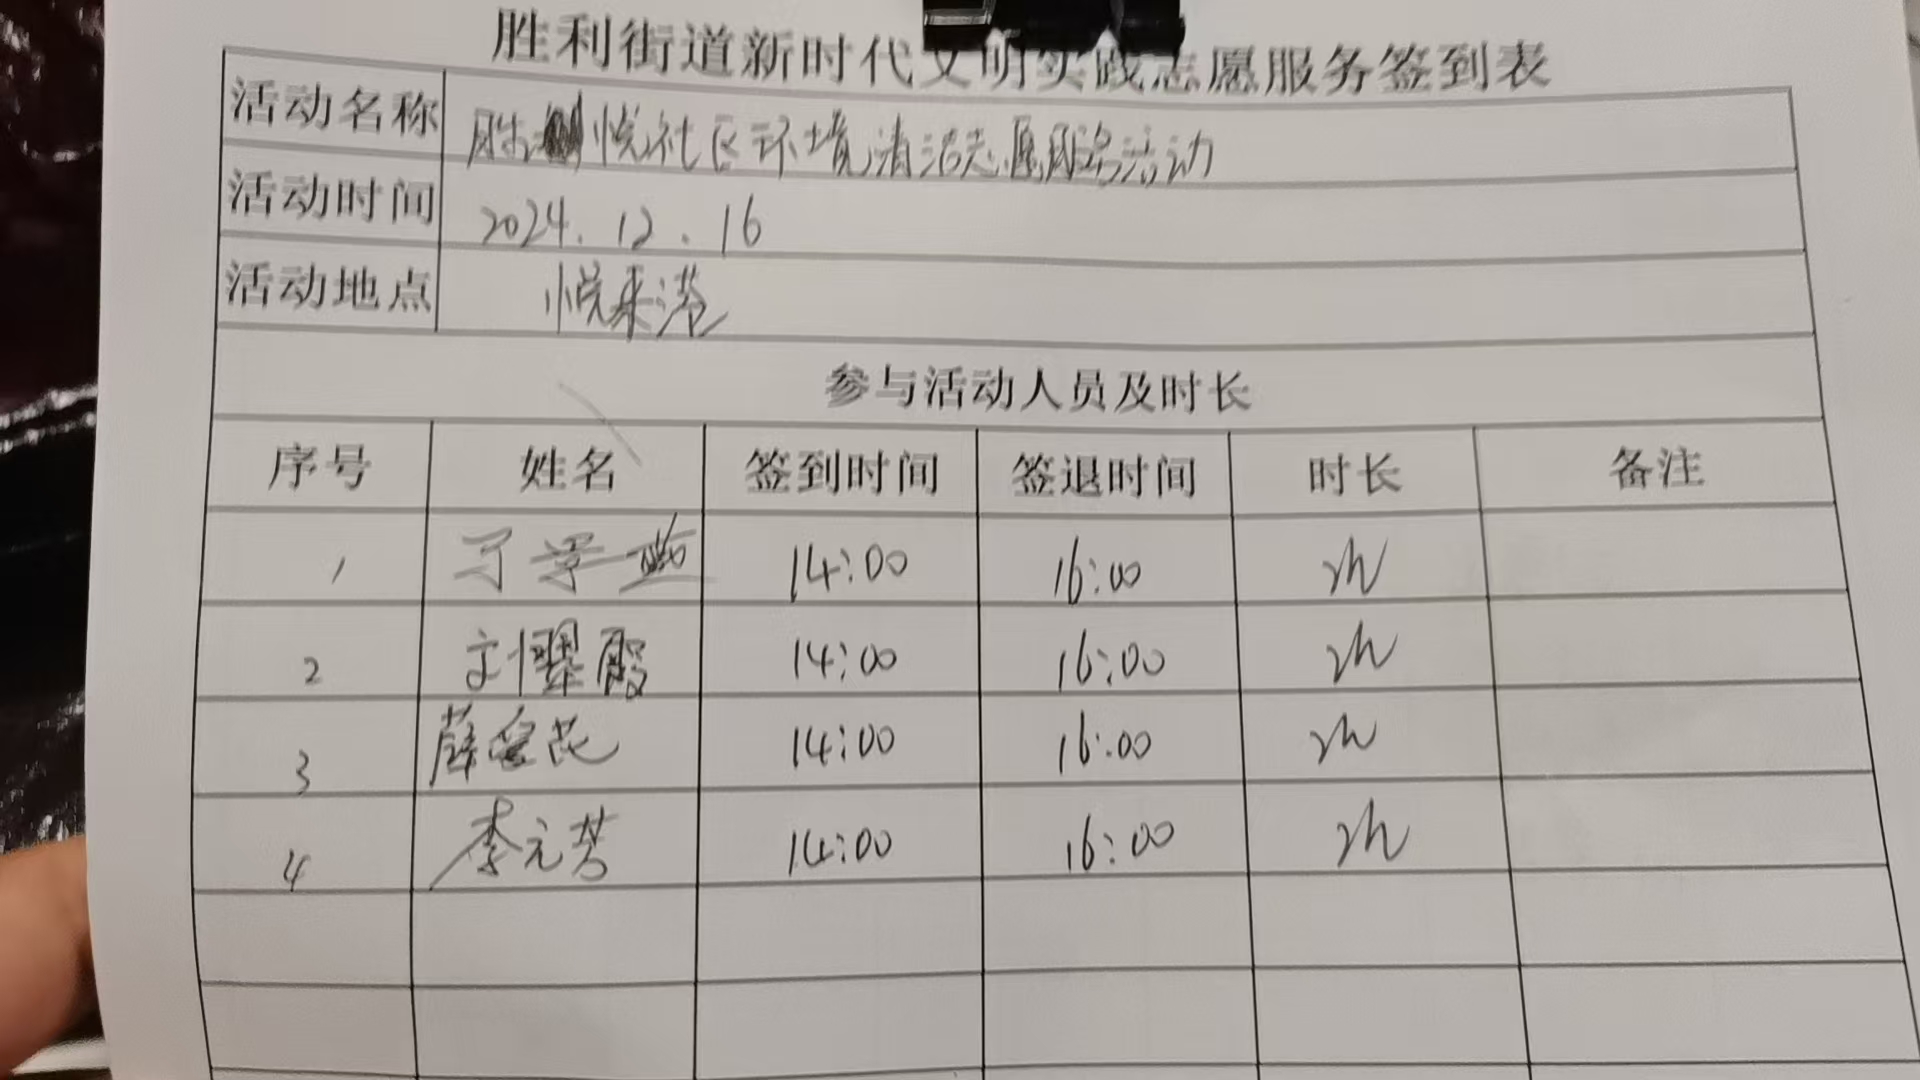 胜利街道新时代文明实践志愿服务签到表
活动名称 胜悦社区环境清洁志愿服务活动
活动时间 2024.12.16
活动地点 悦来湾
参与活动人员及时长
序号 姓名 签到时间 签退时间 时长 备注
1 14:00 16:00 2h
2 14:00 16:00 2h
3 薛爱花 14:00 16:00 2h
4 李元芳 14:00 16:00 2h